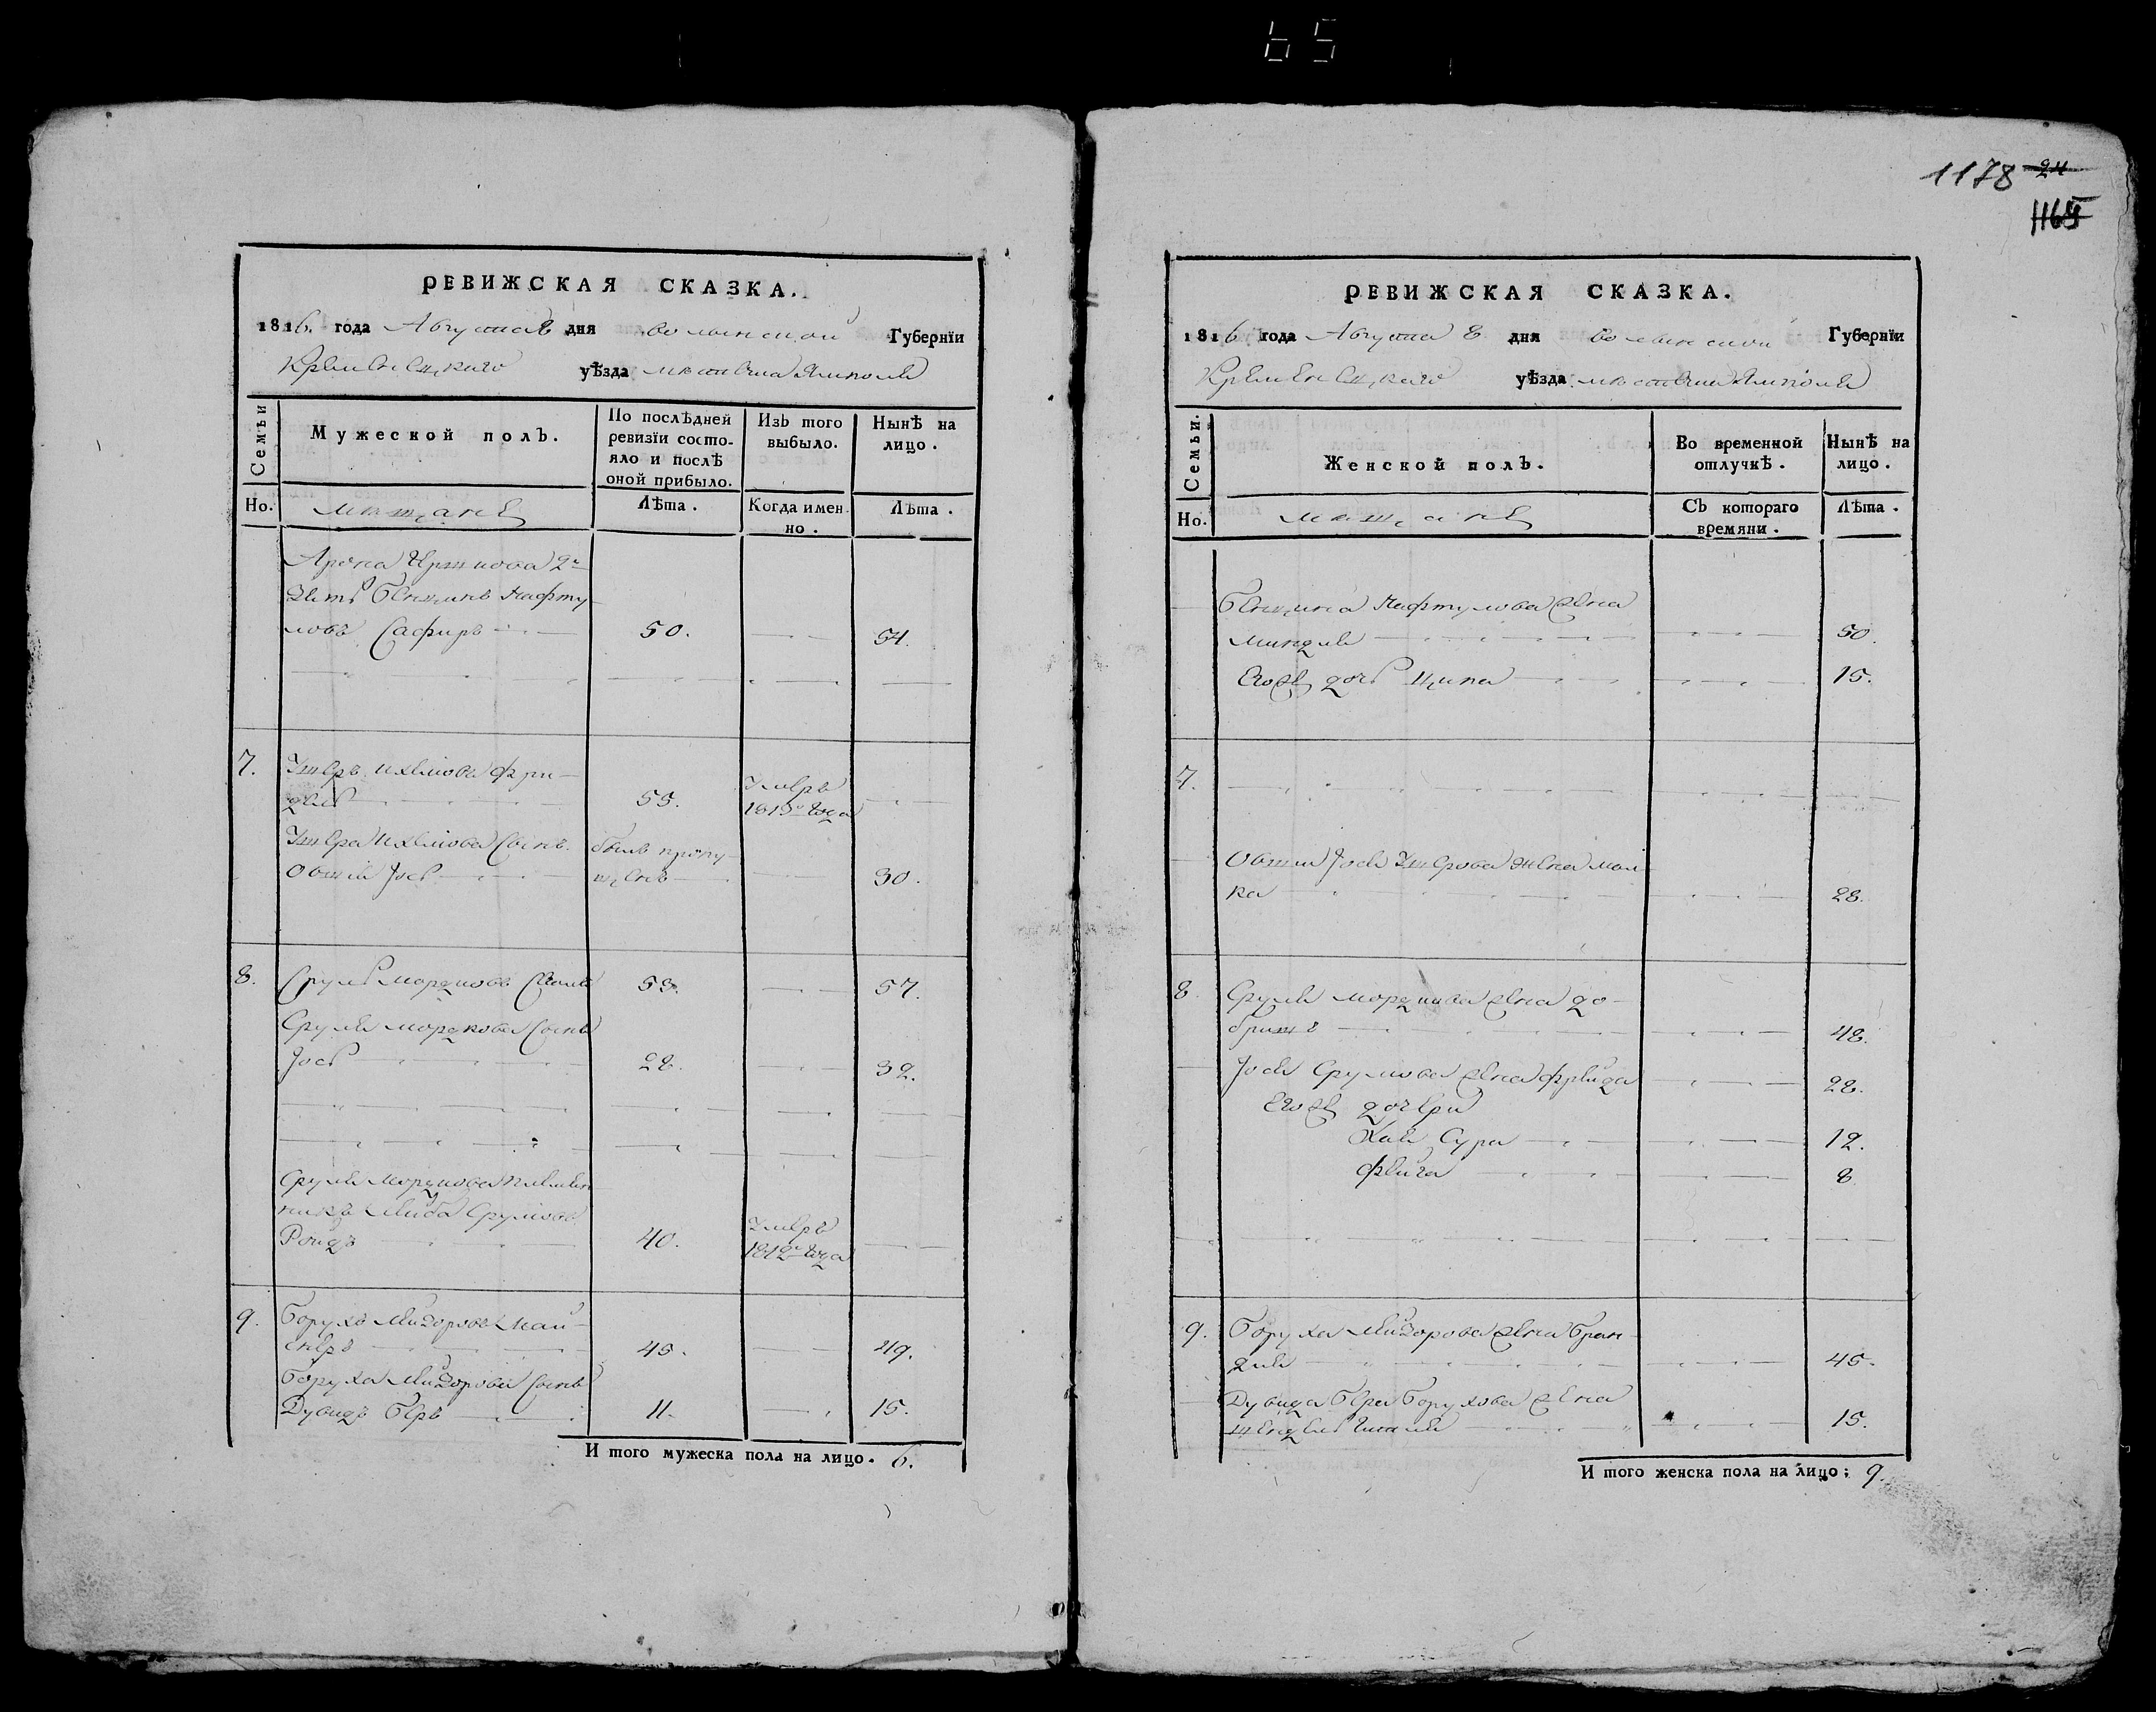 65
1178 24
1165
РЕВИЖСКАЯ СКАЗКА.
1816. года Августа 8 дня Волынской Губернїи
Кременецкаго уѣзда мѣстечка Ямполя
Семьи
Мужеской полъ.
По послѣдней ревизїи состо-
яло и послѣ
оной прибыло.
Изъ того выбыло.
Нынѣ на лицо.
Но. мѣщане
Лѣта.
Когда имен-
но.
Лѣта.
Арона Ершкова 2й
Зять Бенцинъ Нафту
ловъ Сафиръ 50. 54.
7. Умеръ
55. 1813го года
Сынъ былъ пропу
Овшїй Іось щенъ 30.
8. Сруль Мордковъ 53. 57.
Сруля Мордкова Сынъ
Іось 28. 32.
Сруля Мордкова племен
никъ Лейба Сруловъ Умеръ
Роидъ 40. 1812го года
9. Борухъ Лейзоровъ
45. 49.
Боруха Лейзорова Сынъ
Дувидъ Беръ 11. 15.
И того мужеска пола на лицо. 6.
РЕВИЖСКАЯ СКАЗКА.
1816 года Августа 8. дня Волынской Губернїи
Кременецкаго уѣзда мѣстечка Ямполя
Семьи.
Женской полъ.
Во временной
отлучкѣ.
Нынѣ на
лицо.
Но. мѣщане
Съ котораго
времяни.
Лѣта.
Бенцина Нафтулова жена
Миндля 50.
Егожъ дочь Ципа 15.
7.
Овшїя Іося жена Мал
ка 28.
8. Сруля Мордкова жена До-
бришъ 48.
Іося Срулова жена Фрейда 28.
Егожъ дочери
Хая Сура 12.
Фейга 8
9. Боруха Лейзорова жена Бран
для 45.
Дувида Бера Борухова жена
Шендель Гитля 15.
И того женска пола на лицо; 9.